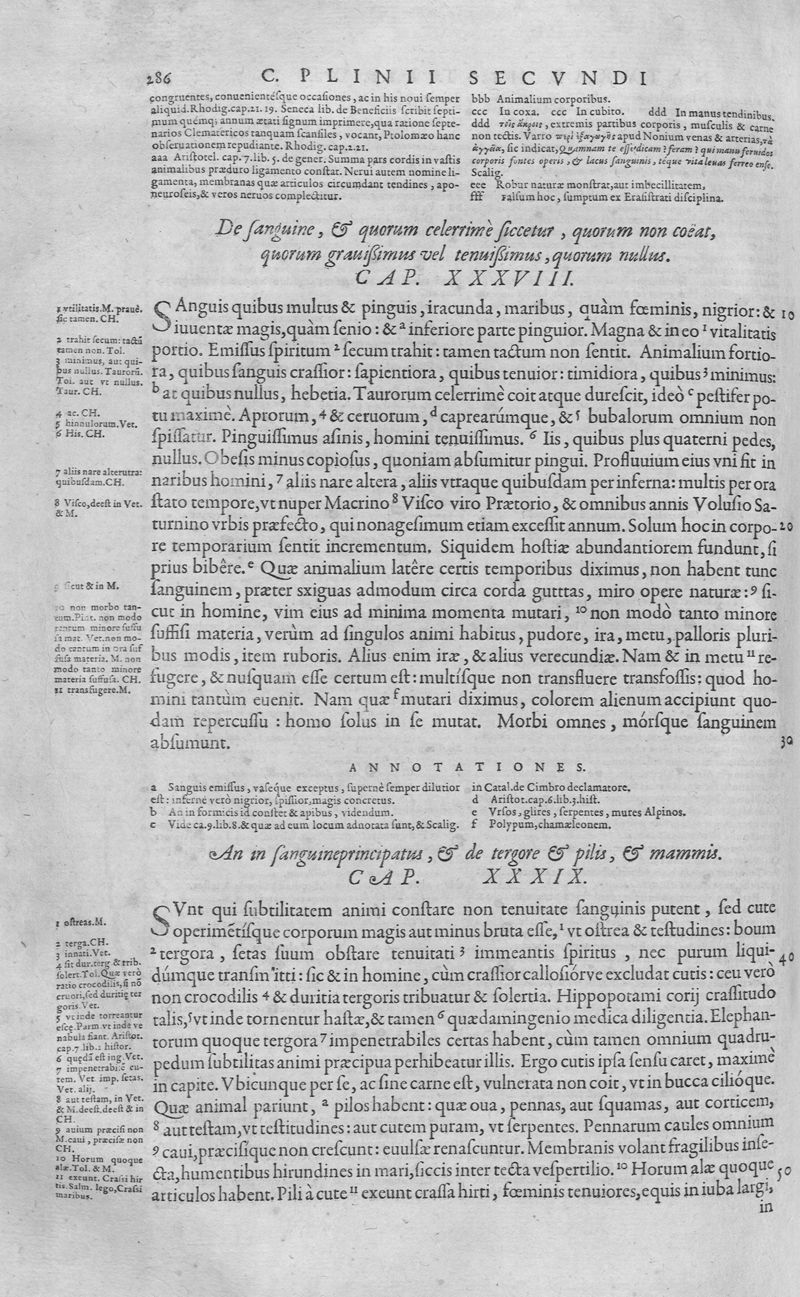 286 C. PLINII SECVNDI
congruentes, conuenientésque occasiones, ac in his noui semper
aliquid. Rhodig. cap. 21. 19. Seneca lib. de Beneficiis scribit septi-
mum quémq; annum ætati signum imprimere, qua ratione septe-
narios Clematericos tanquam scansiles, vocant, Ptolomæo hanc
obseruationem repudiante. Rhodig. cap. 2. 21.
aaa Aristotel. cap. 7. lib. 5. de gener. Summa pars cordis in vastis
animalibus præduro ligamento constat. Nerui autem nomine li-
gamenta, membranas quæ articulos circumdant tendines, apo-
neuroseis, & veros neruos complectitur.
bbb Animalium corporibus.
ccc In coxa. ccc In cubito. ddd In manus tendinibus.
ddd extremis partibus corporis, musculis & carne
non tectis. Varro apud Nonium venas & arterias,
sic indicat, Quamnam te esse dicam? feram? qui manu feruidos
corporis fontes operis, & lacus sanguinis, téque vita leuas ferreo ense.
Scalig.
eee Robur naturæ monstrat, aut imbecillitatem,
fff Falsum hoc, sumptum ex Erasistrati disciplina.
De sanguine, & quorum celerrimè siccetur, quorum non coëat,
quorum grauißimus vel tenuißimus, quorum nullus.
CAP. XXXVIII.
SAnguis quibus multus & pinguis, iracunda, maribus, quàm fœminis, nigrior: & 10
iuuentæ magis, quàm senio: & a inferiore parte pinguior. Magna & in eo 1 vitalitatis
portio. Emissus spiritum 2 secum trahit: tamen tactum non sentit. Animalium fortio-
ra, quibus sanguis crassior: sapientiora, quibus tenuior: timidiora, quibus 3 minimus:
b at quibus nullus, hebetia. Taurorum celerrimè coit atque durescit, ideò c pestifer po-
tu maximè. Aprorum, 4 & ceruorum, d caprearúmque, & 5 bubalorum omnium non
spissatur. Pinguissimus asinis, homini tenuissimus. 6 Iis, quibus plus quaterni pedes,
nullus. Obesis minus copiosus, quoniam absumitur pingui. Profluuium eius vni fit in
naribus homini, 7 aliis nare altera, aliis vtraque quibusdam per inferna: multis per ora
stato tempore, vt nuper Macrino 8 Visco viro Prætorio, & omnibus annis Volusio Sa-
turnino vrbis præfecto, qui nonagesimum etiam excessit annum. Solum hoc in corpo- 20
re temporarium sentit incrementum. Siquidem hostiæ abundantiorem fundunt, si
prius bibêre. e Quæ animalium latêre certis temporibus diximus, non habent tunc
sanguinem, præter sxiguas admodum circa corda gutttas, miro opere naturæ: 9 si-
cut in homine, vim eius ad minima momenta mutari, 10 non modò tanto minore
suffusi materia, verùm ad singulos animi habitus, pudore, ira, metu, palloris pluri-
bus modis, item ruboris. Alius enim iræ, & alius verecundiæ. Nam & in metu 11 re-
fugere, & nusquam esse certum est: multísque non transfluere transfossis: quod ho-
mini tantùm euenit. Nam quæ f mutari diximus, colorem alienum accipiunt quo-
dam repercussu: homo solus in se mutat. Morbi omnes, mórsque sanguinem
absumunt. 30
1 vtilitatis. M. prauè.
sic tamen. CH.
2 trahit secum: tactũ
tamen non. Tol.
3 minimus, aut qui-
bus nullus. Taurorũ.
Tol. aut vt nullus.
Taur. CH.
4 ac. CH.
5 hinnulorum. Vet.
6 His. CH.
7 aliis nare alterutra:
quibusdam. CH.
8 Visco, deest in Vet.
& M.
9 sicut & in M.
10 non morbo tan-
tum. Pint. non modo
tantum minore suffu
sa mat. Vet. non mo-
do tantum in ora suf
fusa materia. M. non
modo tanto minore
materia suffusa. CH.
11 transfugere. M.
ANNOTATIONES.
a Sanguis emissus, vaseque exceptus, supernè semper dilutior
est: infernè verò nigrior, spissior, magis concretus.
b An in formicis id constet & apibus, videndum.
c Vide ca. 9. lib. 8. & quæ ad eum locum adnotata sunt, & Scalig.
in Catal. de Cimbro declamatore.
d Aristot. cap. 6. lib. 3. hist.
e Vrsos, glires, serpentes, mures Alpinos.
f Polypum, chamæleonem.
An in sanguine principatus, & de tergore & pilis, & mammis.
CAP. XXXIX.
SVnt qui subtilitatem animi constare non tenuitate sanguinis putent, sed cute
operimétísque corporum magis aut minus bruta esse, 1 vt ostrea & testudines: boum
2 tergora, setas suum obstare tenuitati 3 immeantis spiritus, nec purum liqui- 40
dúmque transmitti: sic & in homine, cùm crassior callosiórve excludat cutis: ceu verò
non crocodilis 4 & duritia tergoris tribuatur & solertia. Hippopotami corij crassitudo
talis, 5 vt inde tornentur hastæ, & tamen 6 quædam ingenio medica diligentia. Elephan-
torum quoque tergora 7 impenetrabiles certas habent, cùm tamen omnium quadru-
pedum subtilitas animi præcipua perhibeatur illis. Ergo cutis ipsa sensu caret, maximè
in capite. Vbicunque per se, ac sine carne est, vulnerata non coit, vt in bucca cilióque.
Quæ animal pariunt, a pilos habent: quæ oua, pennas, aut squamas, aut corticem,
8 aut testam, vt testitudines: aut cutem puram, vt serpentes. Pennarum caules omnium
9 caui, præcisique non crescunt: euulsæ renascuntur. Membranis volant fragilibus inse-
cta, humentibus hirundines in mari, siccis inter tecta vespertilio. 10 Horum alæ quoque 50
articulos habent. Pili à cute 11 exeunt crassa hirti, fœminis tenuiores, equis in iuba largi,
in
1 ostreas. M.
2 terga. CH.
3 innati. Vet.
4 sit dur. terg & trib.
solert. Tol. Quæ verò
ratio crocodilis, si nõ
cruori, sed duritię ter
goris. Vet.
5 vt inde torreantur
escę. Parm. vt inde ve
nabula fiant. Aristot.
cap. 7. lib. 2 histor.
6 quędã est ing. Vet.
7 impenetrabile cu-
tem. Vet. imp. setas.
Vet. alij.
8 aut testam, in Vet.
& M. deest. deest & in
CH.
9 auium præcisi non
M. caui, præcisæ non
CH.
10 Horum quoque
alæ. Tol. & M.
11 exeunt. Crassi hir
tis. Salm. lego, Crassi
maribus.